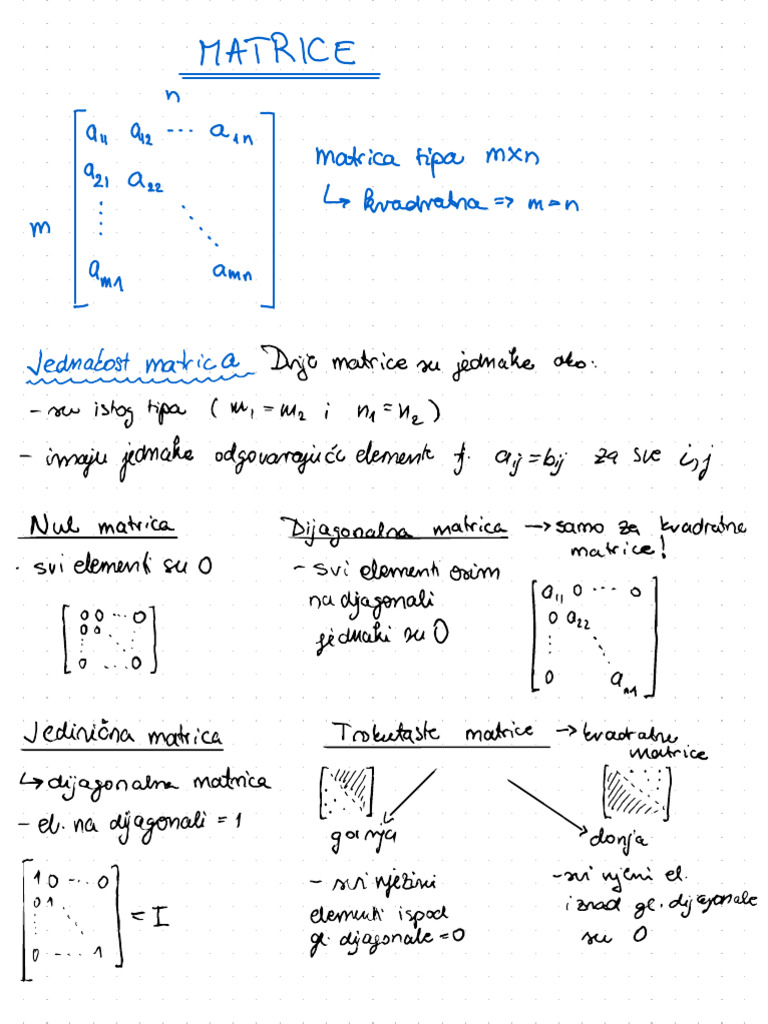 MATRICE
n
a11 a12 ... a1n
a21 a22
m
am1 amn
matrica tipa m×n
↳ kvadratna => m=n
Jednakost matrica Dvije matrice su jednake ako:
- su istog tipa (m1=m2 i n1=n2)
- imaju jednake odgovarajuće elemente tj. aij=bij za sve i,j
Nul matrica
· svi elementi su 0
0 0 ... 0
0 0
0 ... 0
Dijagonalna matrica → samo za kvadratne
matrice!
- svi elementi osim
na dijagonali
jednaki su 0
a11 0 ... 0
0 a22
0
Jedinična matrica
↳ dijagonalna matrica
- el. na dijagonali = 1
1 0 ... 0
0 1
0 ... 1
= I
Trokutaste matrice → kvadratne
matrice
gornja
- svi njezini
elementi ispod
gl. dijagonale = 0
donja
- svi njeni el.
iznad gl. dijagonale
su 0